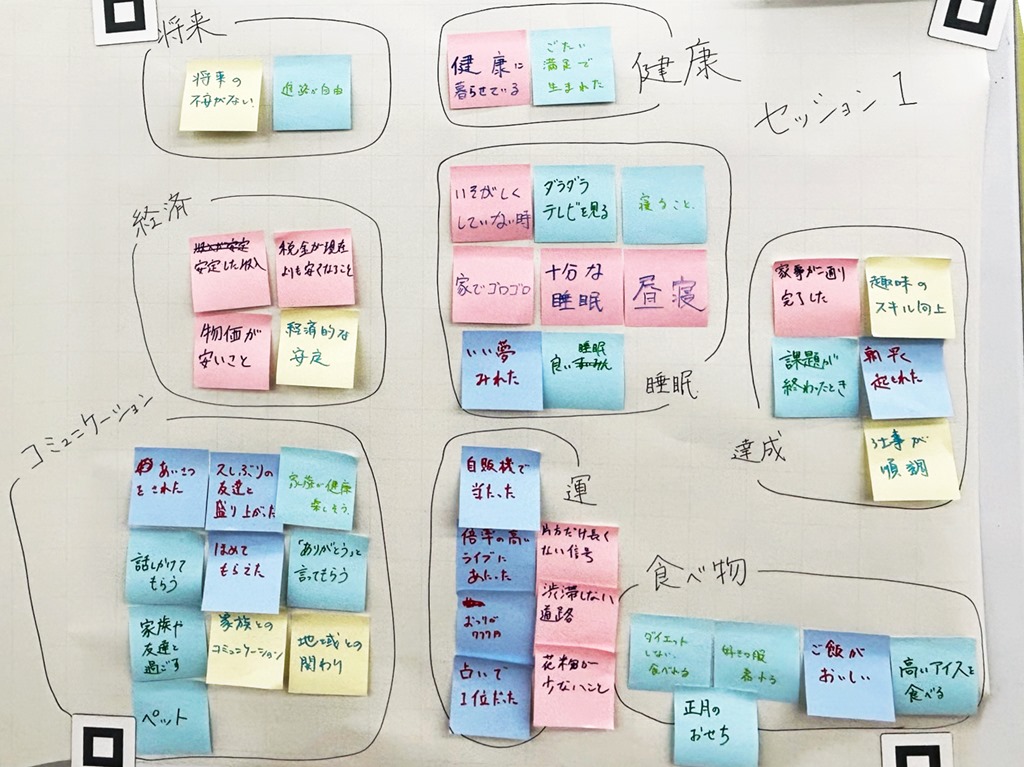 将来
将来の
不安がない
進路が自由
健康に
暮らせている
ごたい
満足で
生まれた
健康
セッション1
経済
安定した収入
税金が現在
よりも安くなること
物価が
安いこと
経済的な
安定
いそがしく
していない時
ダラダラ
テレビを見る
寝ること
家でゴロゴロ
十分な
睡眠
昼寝
いい夢
みれた
睡眠
良い
睡眠
家事が一通り
完了した
趣味の
スキル向上
課題が
終わったとき
朝早く
起きれた
仕事が
順調
達成
コミュニケーション
あいさつ
をされた
久しぶりの
友達と
盛り上がった
家族が健康
楽しそう
話しかけて
もらう
ほめて
もらえた
「ありがとう」と
言ってもらう
家族や
友達と
過ごす
家族との
コミュニケーション
地域との
関わり
ペット
運
自販機で
当たった
倍率の高い
ライブに
あたった
片方だけ長く
ない信号
おつりが
777円
渋滞しない
道路
占いで
1位だった
花粉が
少ないこと
食べ物
ダイエット
しない
食べれる
好きな服
着れる
ご飯が
おいしい
高いアイスを
食べる
正月の
おせち